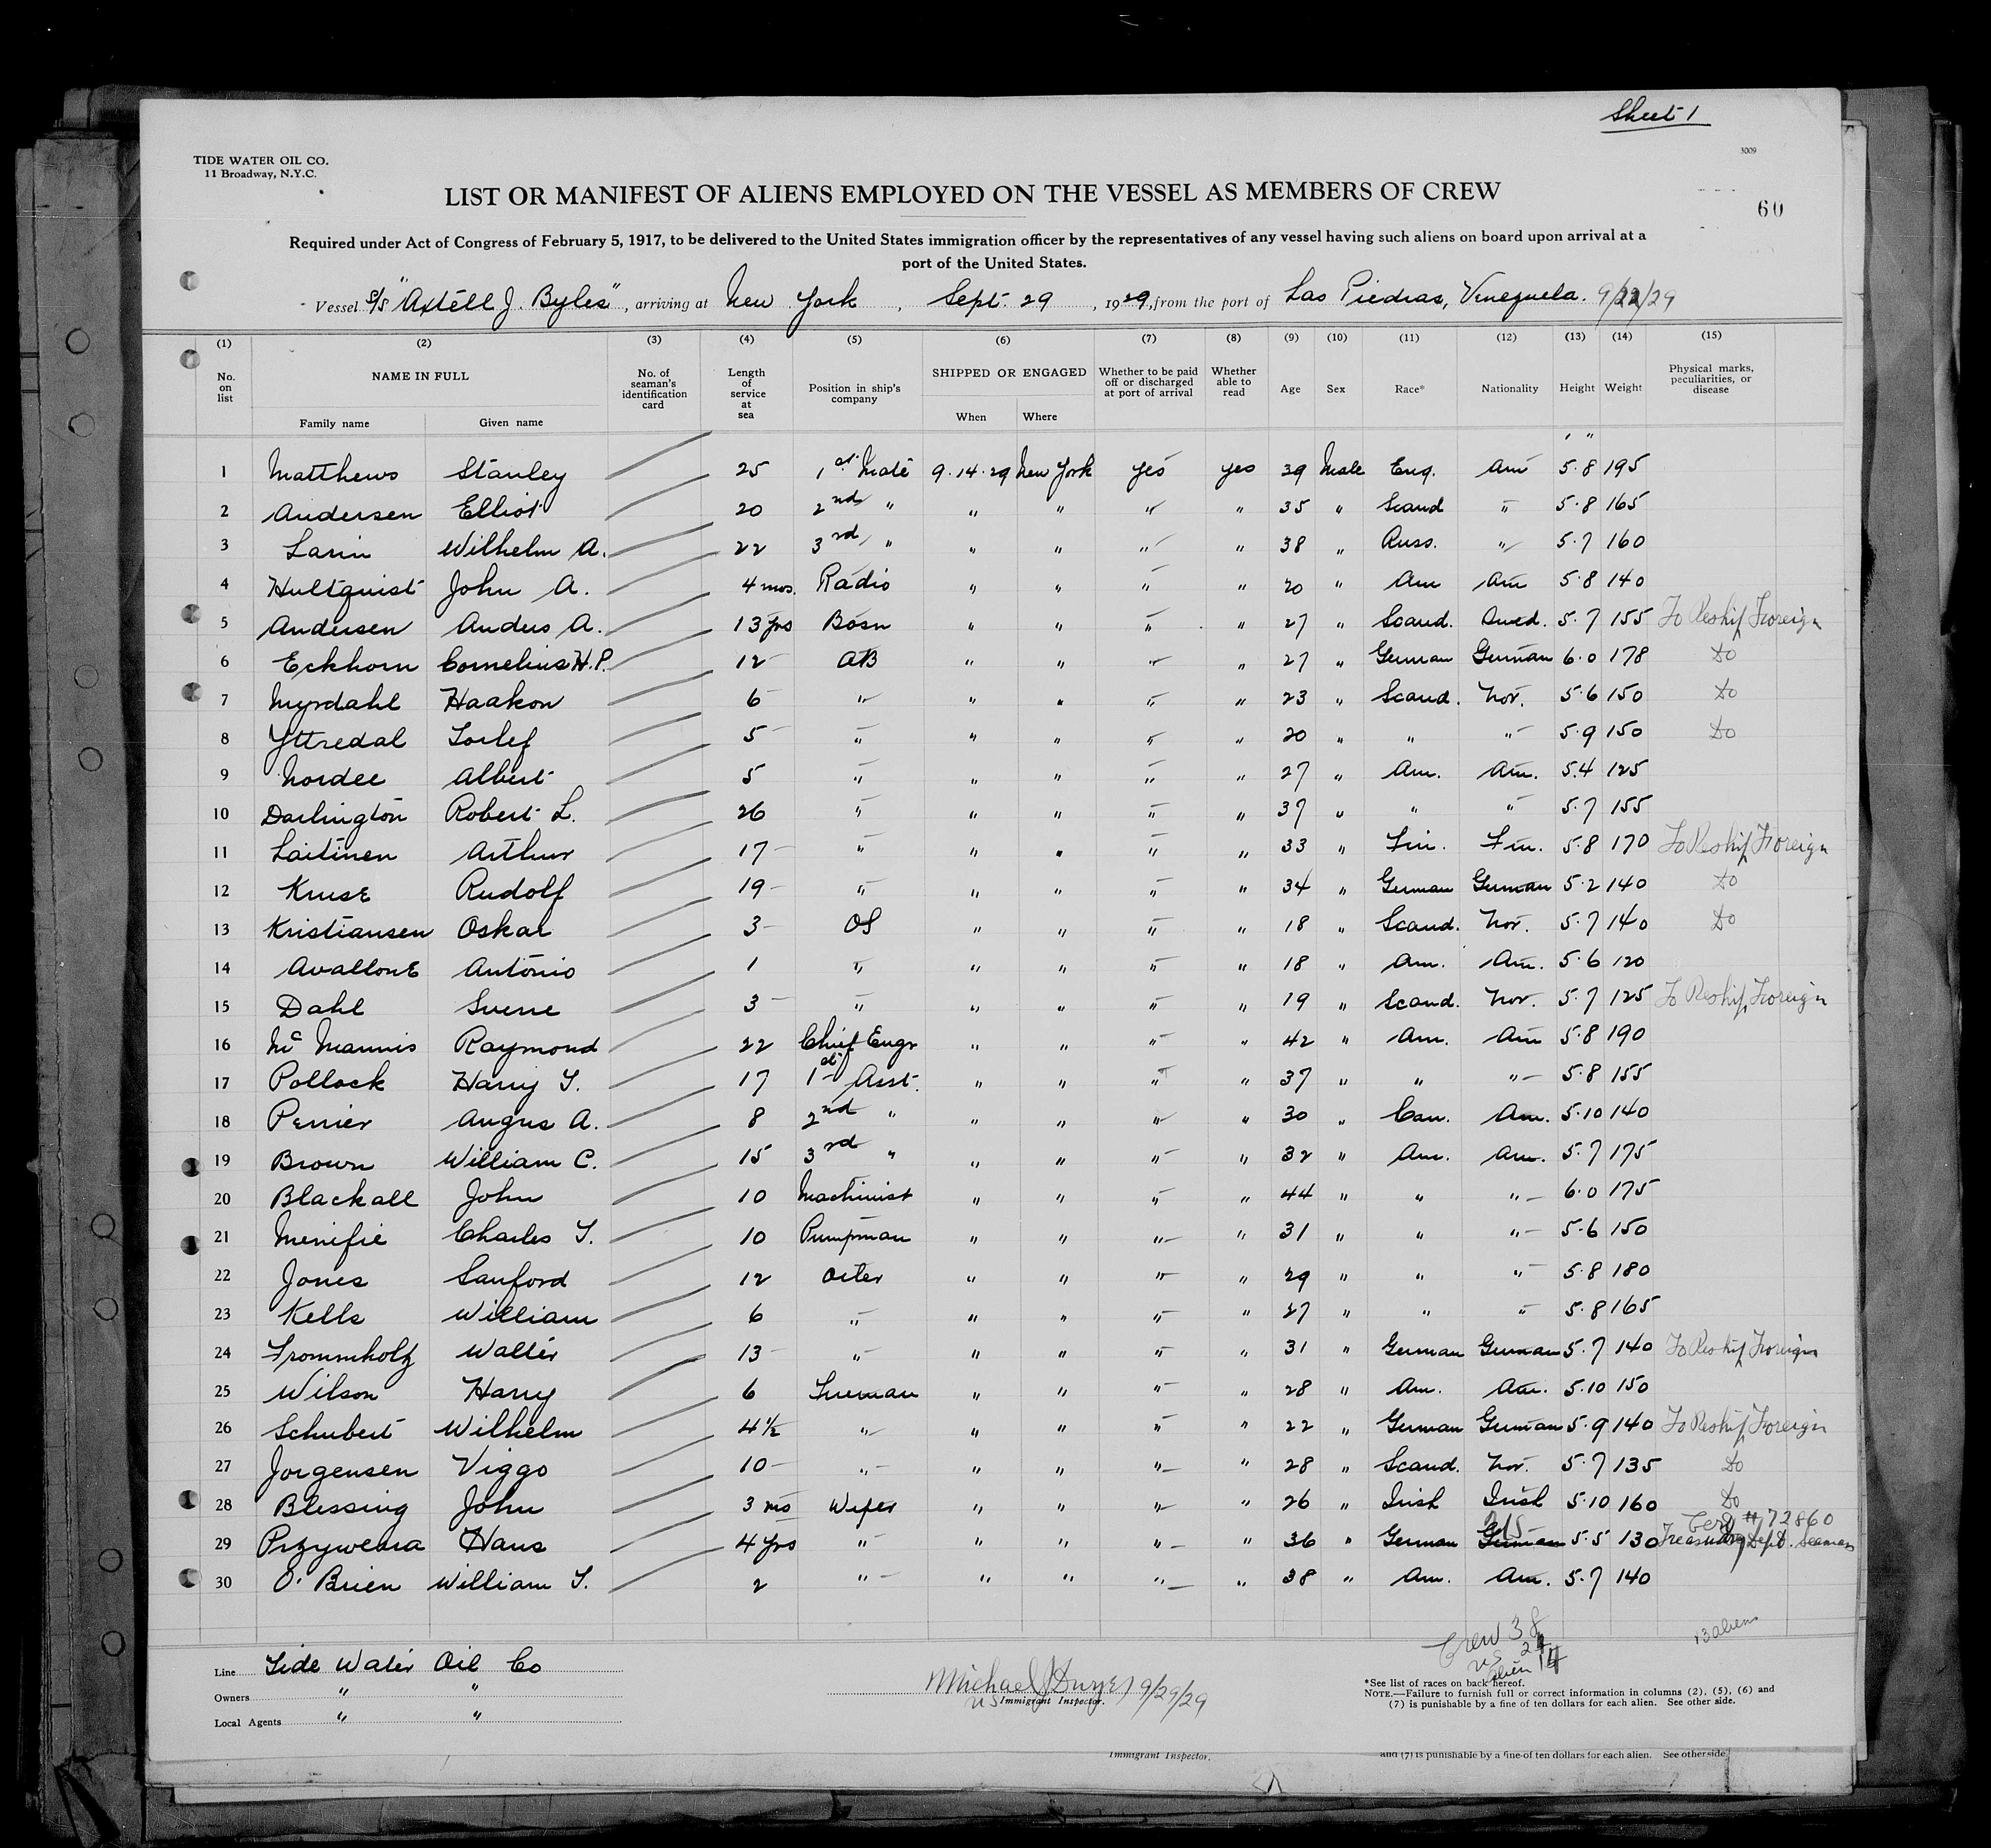 Sheet 1
3009
TIDE WATER OIL CO.
11 Broadway, N.Y.C.
LIST OR MANIFEST OF ALIENS EMPLOYED ON THE VESSEL AS MEMBERS OF CREW
60
Required under Act of Congress of February 5, 1917, to be delivered to the United States immigration officer by the representatives of any vessel having such aliens on board upon arrival at a
port of the United States.
Vessel S/S "Axtell J. Byles", arriving at New York, Sept. 29, 1929, from the port of Las Piedras, Venezuela. 9/22/29
(1) (2) (3) (4) (5) (6) (7) (8) (9) (10) (11) (12) (13) (14) (15)
No. on list NAME IN FULL Family name Given name No. of seaman's identification card Length of service at sea Position in ship's company SHIPPED OR ENGAGED When Where Whether to be paid off or discharged at port of arrival Whether able to read Age Sex Race* Nationality Height Weight Physical marks, peculiarities, or disease
' "
1 Matthews Stanley 25 1st Mate 9.14.29 New York yes yes 39 Male Eng. Am 5.8 195
2 Andersen Elliot 20 2nd " " " " " 35 " Scand " 5.8 165
3 Larin Wilhelm A. 22 3rd " " " " " 38 " Russ. " 5.7 160
4 Hultquist John A. 4 mos. Radio " " " " 20 " Am Am 5.8 140
5 Andersen Anders A. 13 yrs Bosn " " " " 27 " Scand. Swed. 5.7 155 To Reship Foreign
6 Eckhorn Cornelius H.P. 12 AB " " " " 27 " German German 6.0 178 Do
7 Myrdahl Haakon 6 " " " " " 23 " Scand. Nor. 5.6 150 Do
8 Yttredal Torlef 5 " " " " " 20 " " " 5.9 150 Do
9 Nordee Albert 5 " " " " " 27 " Am. Am. 5.4 125
10 Darlington Robert L. 26 " " " " " 37 " " " 5.7 155
11 Laitinen Arthur 17 " " " " " 33 " Fin. Fin. 5.8 170 To Reship Foreign
12 Kruse Rudolf 19 " " " " " 34 " German German 5.2 140 Do
13 Kristiansen Oskar 3 OS " " " " 18 " Scand. Nor. 5.7 140 Do
14 Avallone Antonio 1 " " " " " 18 " Am. Am. 5.6 120
15 Dahl Sverre 3 " " " " " 19 " Scand. Nor. 5.7 125 To Reship Foreign
16 McMannis Raymond 22 Chief Engr " " " " 42 " Am. Am 5.8 190
17 Pollock Harry T. 17 1st Asst. " " " " 37 " " " 5.8 155
18 Perrier Angus A. 8 2nd " " " " " 30 " Can. Am. 5.10 140
19 Brown William C. 15 3rd " " " " " 32 " Am. Am. 5.7 175
20 Blackall John 10 Machinist " " " " 44 " " " 6.0 175
21 Menifie Charles T. 10 Pumpman " " " " 31 " " " 5.6 150
22 Jones Sanford 12 Oiler " " " " 29 " " " 5.8 180
23 Kells William 6 " " " " " 27 " " " 5.8 165
24 Frommholz Walter 13 " " " " " 31 " German German 5.7 140 To Reship Foreign
25 Wilson Harry 6 Fireman " " " " 28 " Am. Am. 5.10 150
26 Schubert Wilhelm 4½ " " " " " 22 " German German 5.9 140 To Reship Foreign
27 Jorgensen Viggo 10 " " " " " 28 " Scand. Nor. 5.7 135 Do
28 Blessing John 3 ms Wiper " " " " 26 " Irish Irish 5.10 160 Do
29 Przywerra Hans 4 yrs " " " " " 36 " German US German 5.5 130 Cert # 72860 Treasury Dept. Seaman
30 O'Brien William T. 2 " " " " " 38 " Am. Am. 5.7 140
13 aliens
Crew 38
US 24
Alien 14
Line Tide Water Oil Co
Owners " "
Local Agents " "
Michael J Dwyer 9/29/29
US Immigrant Inspector.
*See list of races on back hereof.
NOTE.—Failure to furnish full or correct information in columns (2), (5), (6) and
(7) is punishable by a fine of ten dollars for each alien. See other side.
Immigrant Inspector.
and (7) is punishable by a fine of ten dollars for each alien. See other side.